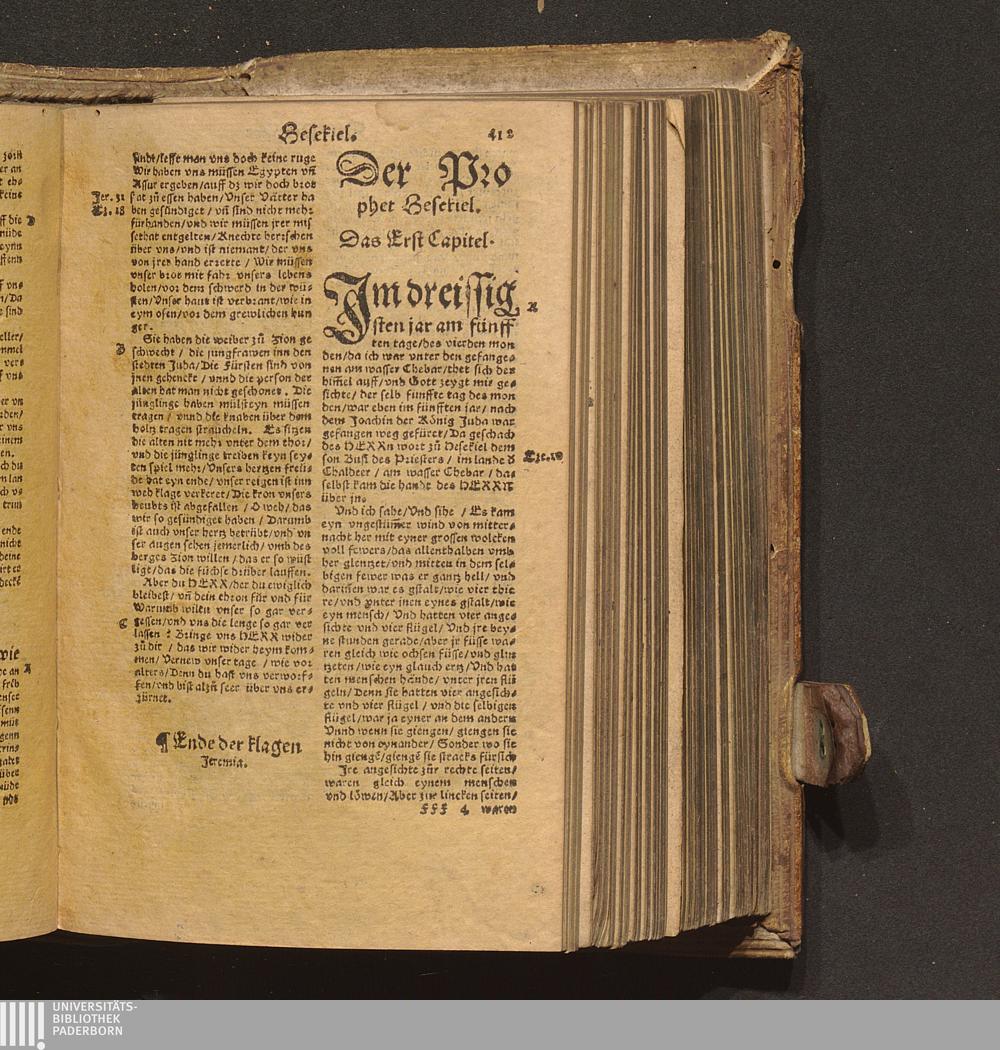 Hesekiel.
412
sindt/lesse man vns doch keine ruge
Wir haben vns müssen Egypten vñ
Assur ergeben/auff dz wir doch brot
sat zů essen haben/Vnser Vätter ha
ben gesündiget/vñ sind nicht mehr
fürhanden/vnd wir müssen jrer mis
sethat entgelten/Knechte herrschen
über vns/vnd ist niemant/der vns
von jrer hand errette/Wir müssen
vnser brot mit fahr vnsers lebens
holen/vor dem schwerd in der wü-
sten/Vnser haut ist verbrant/wie in
eym ofen/vor dem grewlichen hun
ger.
Sie haben die weiber zů Zion ge
schwecht / die jungfrawen inn den
stedten Juda/Die Fürsten sind von
jnen gehenckt / vnnd die person der
alten hat man nicht geschonet. Die
jünglinge haben mülsteyn müssen
tragen / vnnd die knaben über dem
holtz tragen straucheln. Es sitzen
die alten nit mehr vnter dem thor/
vnd die jünglinge treiben keyn sey-
ten spiel mehr/Vnsers hertzen freü-
de hat eyn ende/vnser reigen ist inn
weh klage verkeret/Die kron vnsers
heubts ist abgefallen / O weh/das
wir so gesündiget haben / Darumb
ist auch vnser hertz betrübt/vnd vn
ser augen sehen jemerlich/vmb des
berges Zion willen/das er so wüst
ligt/das die füchse drüber lauffen.
Aber du HERR/der du ewiglich
bleibest/vñ dein thron für vnd für
Warumb wilen vnser so gar ver-
gessen/vnd vns die lenge so gar ver
lassen? Bringe vns HERR wider
zů dir / das wir wider heym kom-
men/Vernew vnser tage / wie vor
alters/Denn du hast vns verworf-
fen/vnd bist alzů seer über vns er-
zürnet.
¶ Ende der klagen
Jeremia.
Jer. 31
Ez. 18
B
C
Der Pro
phet Hesekiel.
Das Erst Capitel.
Im dreissig
sten jar am fünff
ten tage/des vierden mon
den/da ich war vnter den gefange-
nen am wasser Chebar/thet sich der
himel auff/vnd Gott zeygt mir ge-
sichte/der selb funffte tag des mon
den/war eben im fünfften jar/nach
dem Joachin der König Juda war
gefangen weg gefüret/Da geschach
des HERRn wort zů Hesekiel dem
son Busi des Priesters / im lande d
Chaldeer / am wasser Chebar / das
selbst kam die hande des HERRN
über jn.
Vnd ich sahe/Vnd sihe / Es kam
eyn vngestüm̃er wind von mitter-
nacht her mit eyner grossen wolcken
voll fewers/das allenthalben vmb
her glentzet/vnd mitten in dem sel-
bigen fewer was er gantz hell/vnd
darinnen war es gstalt/wie vier thie
re/vnd vnter jnen eynes gstalt/wie
eyn mensch/Vnd hatten vier ange-
sichte vnd vier flügel/Vnd jre bey-
ne stunden gerade/aber jr füsse wa-
ren gleich wie ochsen füsse/vnd glin
tzeten/wie eyn glauch ertz/Vnd hat
ten menschen hände/vnter jren flü
geln/Denn sie hatten vier angesich-
te vnd vier flügel / vnd die selbigen
flügel/war ja eyner an dem andern
Vnnd wenn sie giengen/giengen sie
nicht von eynander/Sonder wo sie
hin giengẽ/giengẽ sie stracks fürsich
Ire angesichte zůr rechte seiten/
waren gleich eynem menschen
vnd löwen/Aber zur lincken seiten/
fff 4 waren
A
Eze. 10
UNIVERSITÄTS-
BIBLIOTHEK
PADERBORN